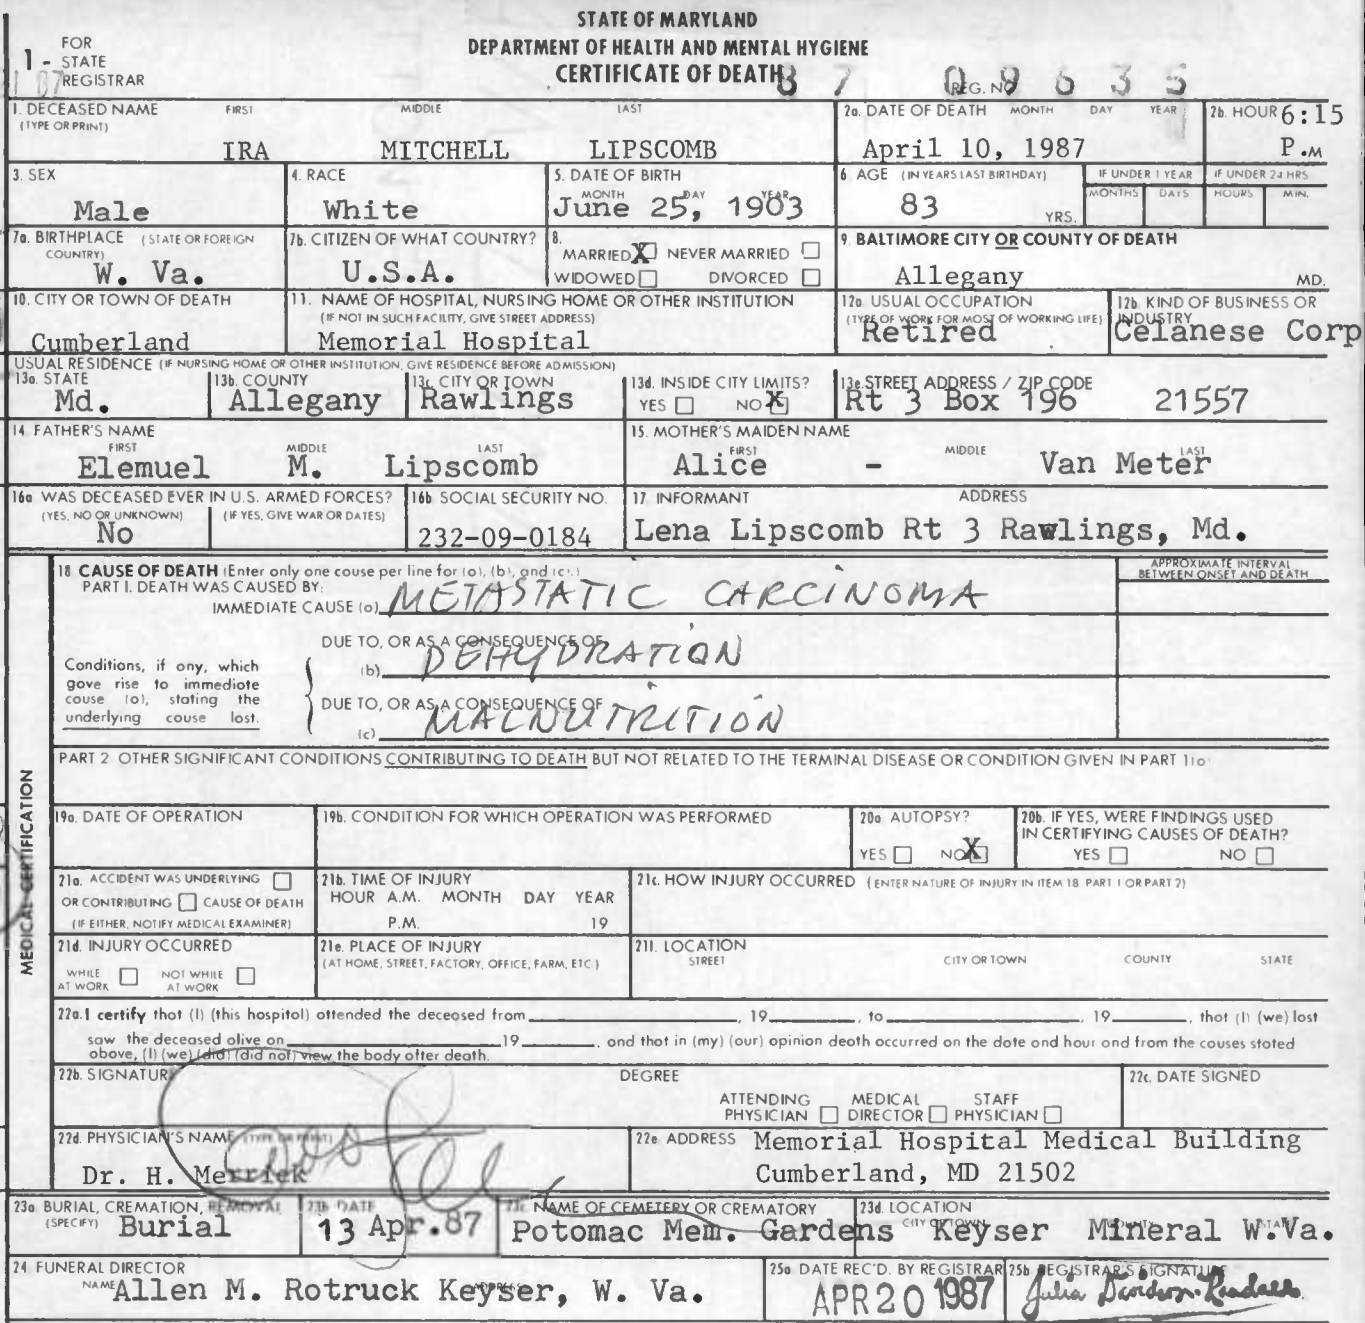 STATE OF MARYLAND
DEPARTMENT OF HEALTH AND MENTAL HYGIENE
CERTIFICATE OF DEATH
1 - FOR STATE REGISTRAR
REG. NO. 87 09635
1. DECEASED NAME (TYPE OR PRINT) FIRST MIDDLE LAST
IRA MITCHELL LIPSCOMB
2a. DATE OF DEATH MONTH DAY YEAR
April 10, 1987
2b. HOUR 6:15 P.M
3. SEX
Male
4. RACE
White
5. DATE OF BIRTH MONTH DAY YEAR
June 25, 1903
6. AGE (IN YEARS LAST BIRTHDAY)
83 YRS.
IF UNDER 1 YEAR MONTHS DAYS
IF UNDER 24 HRS HOURS MIN.
7a. BIRTHPLACE (STATE OR FOREIGN COUNTRY)
W. Va.
7b. CITIZEN OF WHAT COUNTRY?
U.S.A.
8. MARRIED X NEVER MARRIED
WIDOWED DIVORCED
9. BALTIMORE CITY OR COUNTY OF DEATH
Allegany MD.
10. CITY OR TOWN OF DEATH
Cumberland
11. NAME OF HOSPITAL, NURSING HOME OR OTHER INSTITUTION
(IF NOT IN SUCH FACILITY, GIVE STREET ADDRESS)
Memorial Hospital
12a. USUAL OCCUPATION
(TYPE OF WORK FOR MOST OF WORKING LIFE)
Retired
12b. KIND OF BUSINESS OR INDUSTRY
Celanese Corp
USUAL RESIDENCE (IF NURSING HOME OR OTHER INSTITUTION, GIVE RESIDENCE BEFORE ADMISSION)
13a. STATE
Md.
13b. COUNTY
Allegany
13c. CITY OR TOWN
Rawlings
13d. INSIDE CITY LIMITS?
YES NO X
13e. STREET ADDRESS / ZIP CODE
Rt 3 Box 196 21557
14. FATHER'S NAME
FIRST MIDDLE LAST
Elemuel M. Lipscomb
15. MOTHER'S MAIDEN NAME
FIRST MIDDLE LAST
Alice - Van Meter
16a WAS DECEASED EVER IN U.S. ARMED FORCES?
(YES, NO OR UNKNOWN) (IF YES, GIVE WAR OR DATES)
No
16b SOCIAL SECURITY NO.
232-09-0184
17. INFORMANT ADDRESS
Lena Lipscomb Rt 3 Rawlings, Md.
MEDICAL CERTIFICATION
18 CAUSE OF DEATH (Enter only one cause per line for (a), (b), and (c).)
PART I. DEATH WAS CAUSED BY:
IMMEDIATE CAUSE (a) METASTATIC CARCINOMA
APPROXIMATE INTERVAL BETWEEN ONSET AND DEATH
Conditions, if any, which gave rise to immediate cause (a), stating the underlying cause last.
DUE TO, OR AS A CONSEQUENCE OF
(b) DEHYDRATION
DUE TO, OR AS A CONSEQUENCE OF
(c) MALNUTRITION
PART 2 OTHER SIGNIFICANT CONDITIONS CONTRIBUTING TO DEATH BUT NOT RELATED TO THE TERMINAL DISEASE OR CONDITION GIVEN IN PART 1(a)
19a. DATE OF OPERATION
19b. CONDITION FOR WHICH OPERATION WAS PERFORMED
20a AUTOPSY?
YES NO X
20b. IF YES, WERE FINDINGS USED IN CERTIFYING CAUSES OF DEATH?
YES NO
21a. ACCIDENT WAS UNDERLYING
OR CONTRIBUTING CAUSE OF DEATH
(IF EITHER, NOTIFY MEDICAL EXAMINER)
21b. TIME OF INJURY
HOUR A.M. MONTH DAY YEAR
P.M. 19
21c. HOW INJURY OCCURRED (ENTER NATURE OF INJURY IN ITEM 18 PART 1 OR PART 2)
21d. INJURY OCCURRED
WHILE AT WORK NOT WHILE AT WORK
21e. PLACE OF INJURY
(AT HOME, STREET, FACTORY, OFFICE, FARM, ETC)
21f. LOCATION
STREET CITY OR TOWN COUNTY STATE
22a. I certify that (I) (this hospital) attended the deceased from , 19 , to , 19 , that (I) (we) last
saw the deceased alive on 19 , and that in (my) (our) opinion death occurred on the date and hour and from the causes stated
above, (I) (we) (did) (did not) view the body after death.
22b. SIGNATURE DEGREE
ATTENDING PHYSICIAN MEDICAL DIRECTOR STAFF PHYSICIAN
22c. DATE SIGNED
22d. PHYSICIAN'S NAME (TYPE OR PRINT)
Dr. H. Merrick
22e ADDRESS Memorial Hospital Medical Building
Cumberland, MD 21502
23a BURIAL, CREMATION, REMOVAL
(SPECIFY) Burial
23b DATE
13 Apr.87
23c. NAME OF CEMETERY OR CREMATORY
Potomac Mem. Gardens
23d. LOCATION
CITY OR TOWN STATE
Keyser Mineral W.Va.
24 FUNERAL DIRECTOR
NAME ADDRESS
Allen M. Rotruck Keyser, W. Va.
25a DATE REC'D. BY REGISTRAR
APR 20 1987
25b REGISTRAR'S SIGNATURE
Julia Davidson-Randall